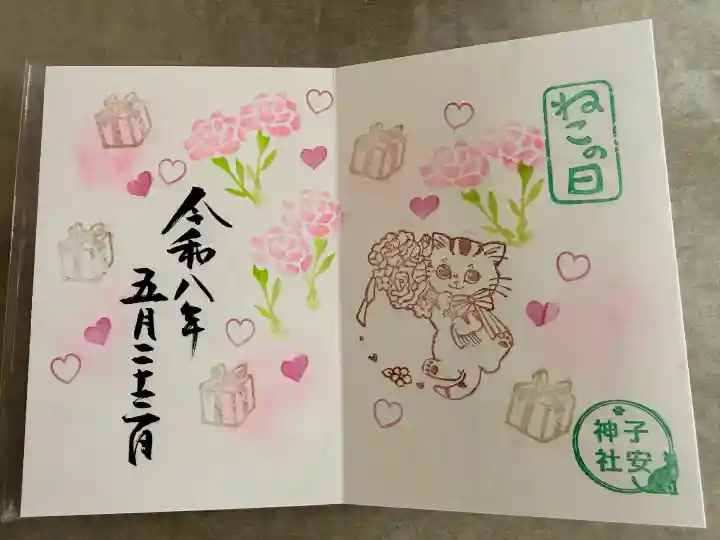 ねこの日
子安
神社
令和八年
五月二十二日